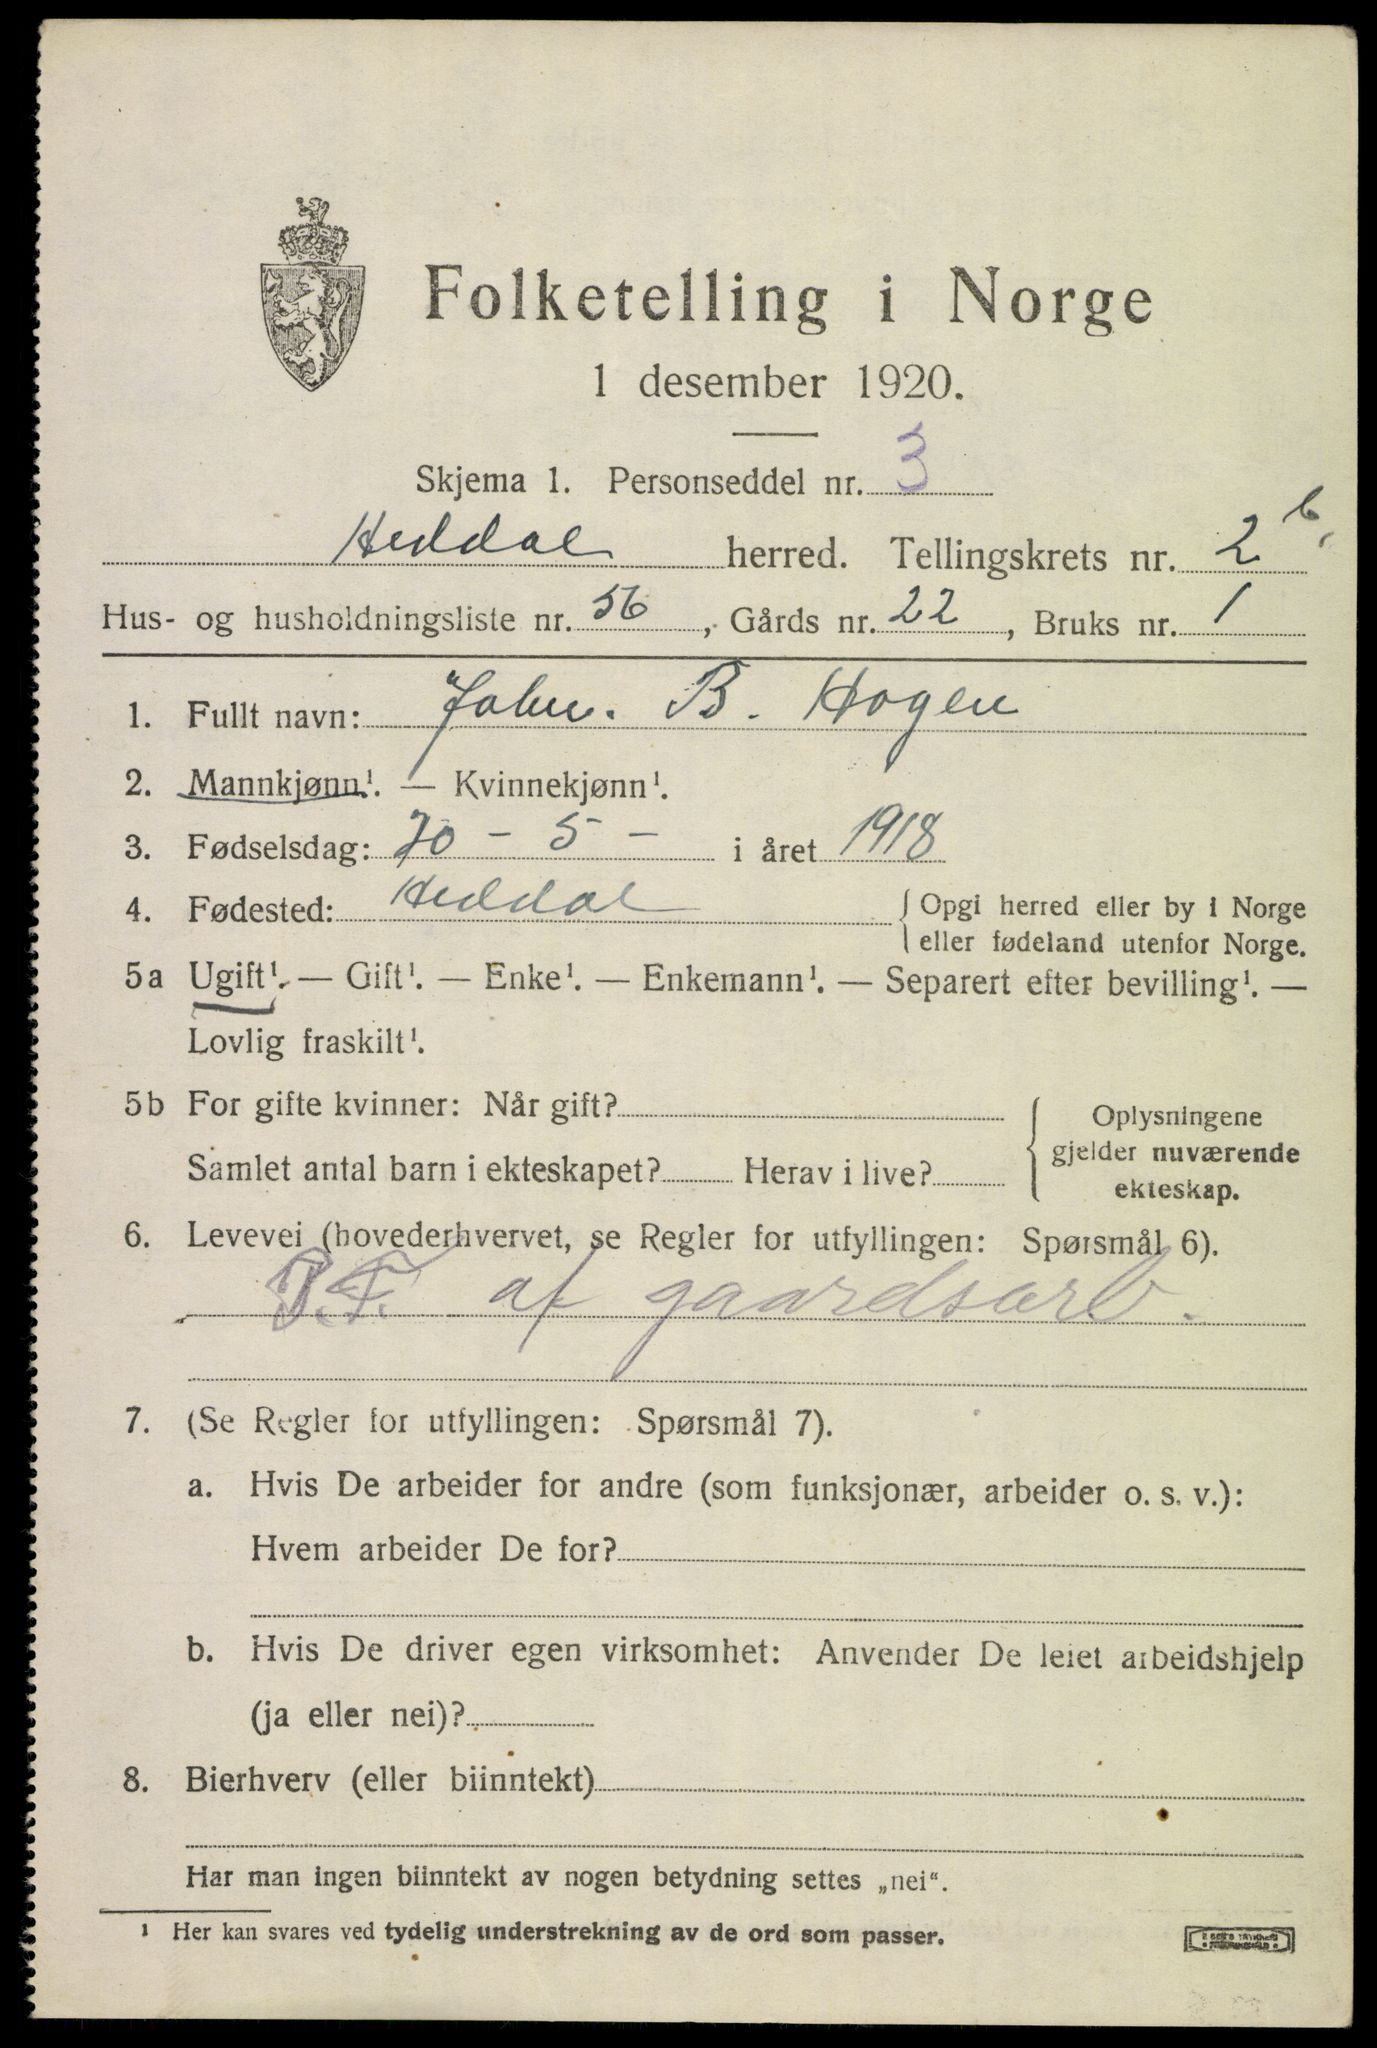 Folketelling i Norge
1 desember 1920.
Skjema 1. Personseddel nr. 3
Heddal herred. Tellingskrets nr. 2 b
Hus- og husholdningsliste nr. 56, Gårds nr. 22, Bruks nr. 1
1. Fullt navn: John. B. Hogen
2. Mannkjønn¹. — Kvinnekjønn¹.
3. Fødselsdag: - 5 - i året 1918
4. Fødested: Heddal { Opgi herred eller by i Norge
eller fødeland utenfor Norge.
5a Ugift¹. — Gift¹. — Enke¹. — Enkemann¹. — Separert efter bevilling¹. —
Lovlig fraskilt¹.
5b For gifte kvinner: Når gift? { Oplysningene
gjelder nuværende
Samlet antal barn i ekteskapet? Herav i live? ekteskap.
6. Levevei (hovederhvervet, se Regler for utfyllingen: Spørsmål 6).
af gaardsarb.
7. (Se Regler for utfyllingen: Spørsmål 7).
a. Hvis De arbeider for andre (som funksjonær, arbeider o. s. v.):
Hvem arbeider De for?
b. Hvis De driver egen virksomhet: Anvender De leiet arbeidshjelp
(ja eller nei)?
8. Bierhverv (eller biinntekt)
Har man ingen biinntekt av nogen betydning settes „nei“.
¹ Her kan svares ved tydelig understrekning av de ord som passer.